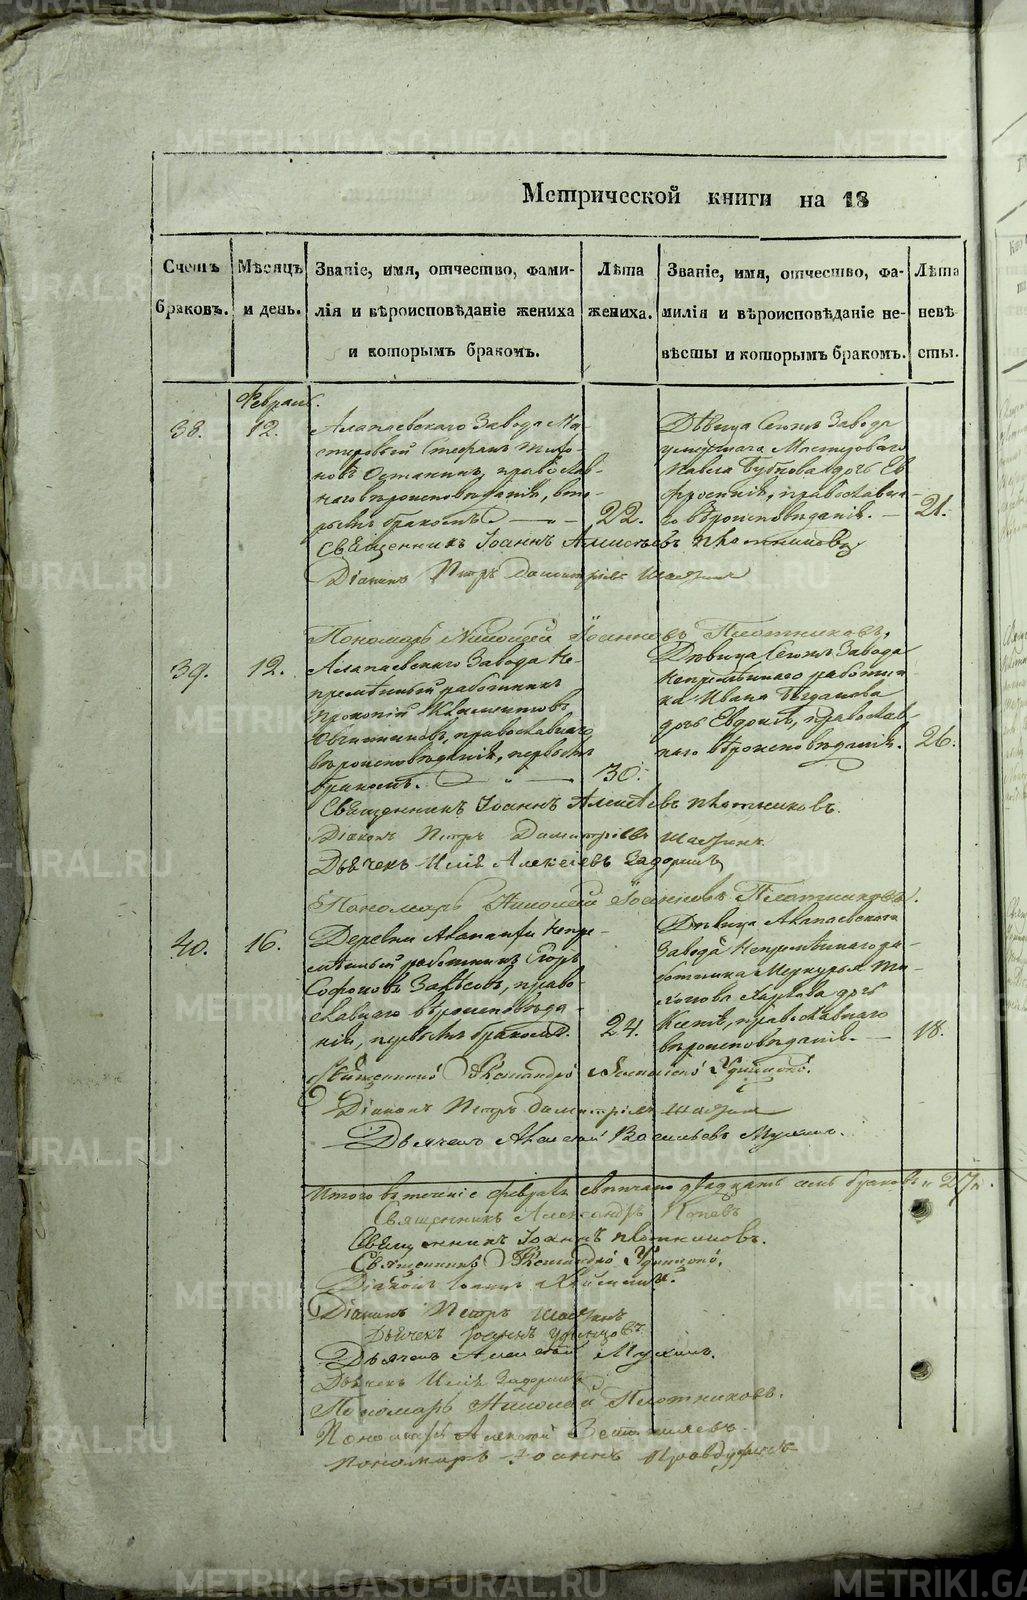 Метрической книги на 18
Счетъ браковъ.
Мѣсяцъ и день.
Званіе, имя, отчество, фами-
лія и вѣроисповѣданіе жениха
и которымъ бракомъ.
Лѣта жениха.
Званіе, имя, отчество, фа-
милія и вѣроисповѣданіе не-
вѣсты и которымъ бракомъ.
Лѣта невѣ
сты.
Февраль.
38.
12.
Алапаевскаго Завода Ма-
стеровый Стефанъ
Останинъ, православ-
наго вѣроисповѣданія, вто-
рымъ бракомъ
22.
Дѣвица Сегожъ Завода
умершаго Мастероваго
Павла Бубнова дочь Ев
фросинія, православна-
го вѣроисповѣданія.
21.
Священникъ Іоаннъ Алексѣевъ Плотниковъ
Діаконъ Петръ Димитріевъ
Пономарь Николай Іоанновъ Плотниковъ.
39.
12.
Алапаевскаго Завода Не-
премѣнный работникъ
Прокопій
православнаго
вѣроисповѣданія, первымъ
бракомъ.
30.
Дѣвица Сегожъ Завода
Непремѣннаго работни-
ка Ивана Богданова
дочь Евдокія, православ-
наго вѣроисповѣданія.
26.
Священникъ Іоаннъ Алексѣевъ Плотниковъ.
Діаконъ Петръ Димитріевъ
Дьячекъ Илія Алексѣевъ Задоринъ
Пономарь Николай Іоанновъ Плотниковъ.
40.
16.
Деревни Алапаихи Непре-
мѣнный работникъ Егоръ
Софоновъ право-
славнаго вѣроисповѣда-
нія, первымъ бракомъ.
24.
Дѣвица Алапаевскаго
Завода Непремѣннаго ра-
ботника Меркурья
дочь
Ксенія, православнаго
вѣроисповѣданія.
18.
Священникъ Удинцовъ.
Діаконъ Петръ Димитріевъ
Дьячекъ Алексѣй Васильевъ Мухинъ.
Итого въ теченіе февраля свѣнчано двадцать семь браковъ 27.
Священникъ Александръ Поповъ
Священникъ Іоаннъ Плотниковъ.
Священникъ Удинцовъ.
Діаконъ Іоаннъ
Діаконъ Петръ
Дьячекъ Іоаннъ Удинцовъ
Дьячекъ Алексѣй Мухинъ.
Дьячекъ Илія Задоринъ
Пономарь Николай Плотниковъ.
Пономарь Алексѣй
Пономарь Іоаннъ
METRIKI.GASO-URAL.RU